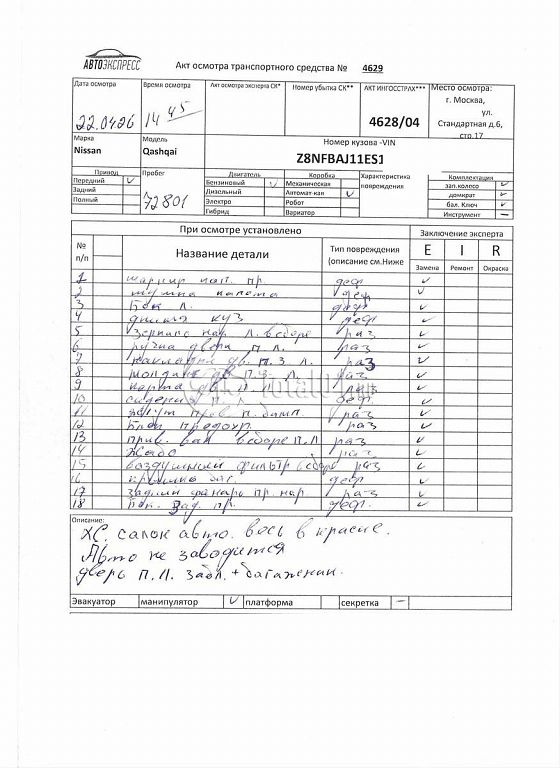 АВТОЭКСПРЕСС
Акт осмотра транспортного средства № 4629
Дата осмотра Время осмотра Акт осмотра эксперта СК* Номер убытка СК** АКТ ИНГОССТРАХ*** Место осмотра:
г. Москва,
ул.
22.04.26 14 45 4628/04 Стандартная д.6,
стр.17
Марка Модель Номер кузова -VIN
Nissan Qashqai Z8NFBAJ11ES1
Привод Пробег Двигатель Коробка Характеристика Комплектация
Передний ✓ 72801 Бензиновый ✓ Механическая повреждения зап.колесо ✓
Задний Дизельный Автомат-кая ✓ домкрат ✓
Полный Электро Робот бал. Ключ ✓
Гибрид Вариатор Инструмент –
При осмотре установлено Заключение эксперта
№ Название детали Тип повреждения E I R
п/п (описание см.Ниже Замена Ремонт Окраска
1 деф ✓
2 капота деф ✓
3 Бок Л. деф ✓
4 куз деф ✓
5 Зеркало нар Л. в сборе раз ✓
6 ручка двери П Л. раз ✓
7 накладка дв. П.З Л. раз ✓
8 молдинг дв П.З- Л. раз ✓
9 карта дв П. Л раз ✓
10 сиденье П. Л деф ✓
11 жгут пров П. бамп раз ✓
12 Блок предохр. раз ✓
13 прив. вал в сборе П Л раз ✓
14 Жабо раз ✓
15 воздушный фильтр в сборе раз ✓
16 крышка баг. деф ✓
17 задний фонарь пр. нар раз ✓
18 Бок. Зад. пр. деф. ✓
Описание:
ХС. салон авто. весь в краске.
Авто не заводится
дверь П. Л. забл. + багажник.
Эвакуатор манипулятор ✓ платформа секретка –